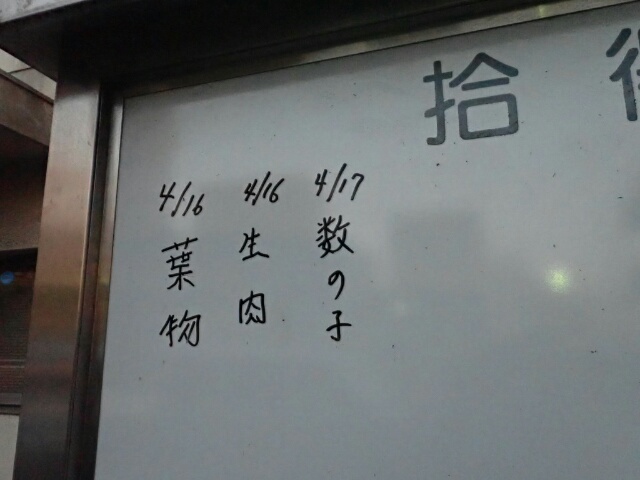 拾
4/17 数の子
4/16 生肉
4/16 葉物